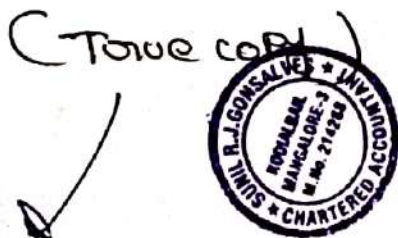 (True copy)
SUNIL R.J.GONSALVES ★ CHARTERED ACCOUNTANT ★
KODIALBAIL
MANGALORE-3
M.No. 214288